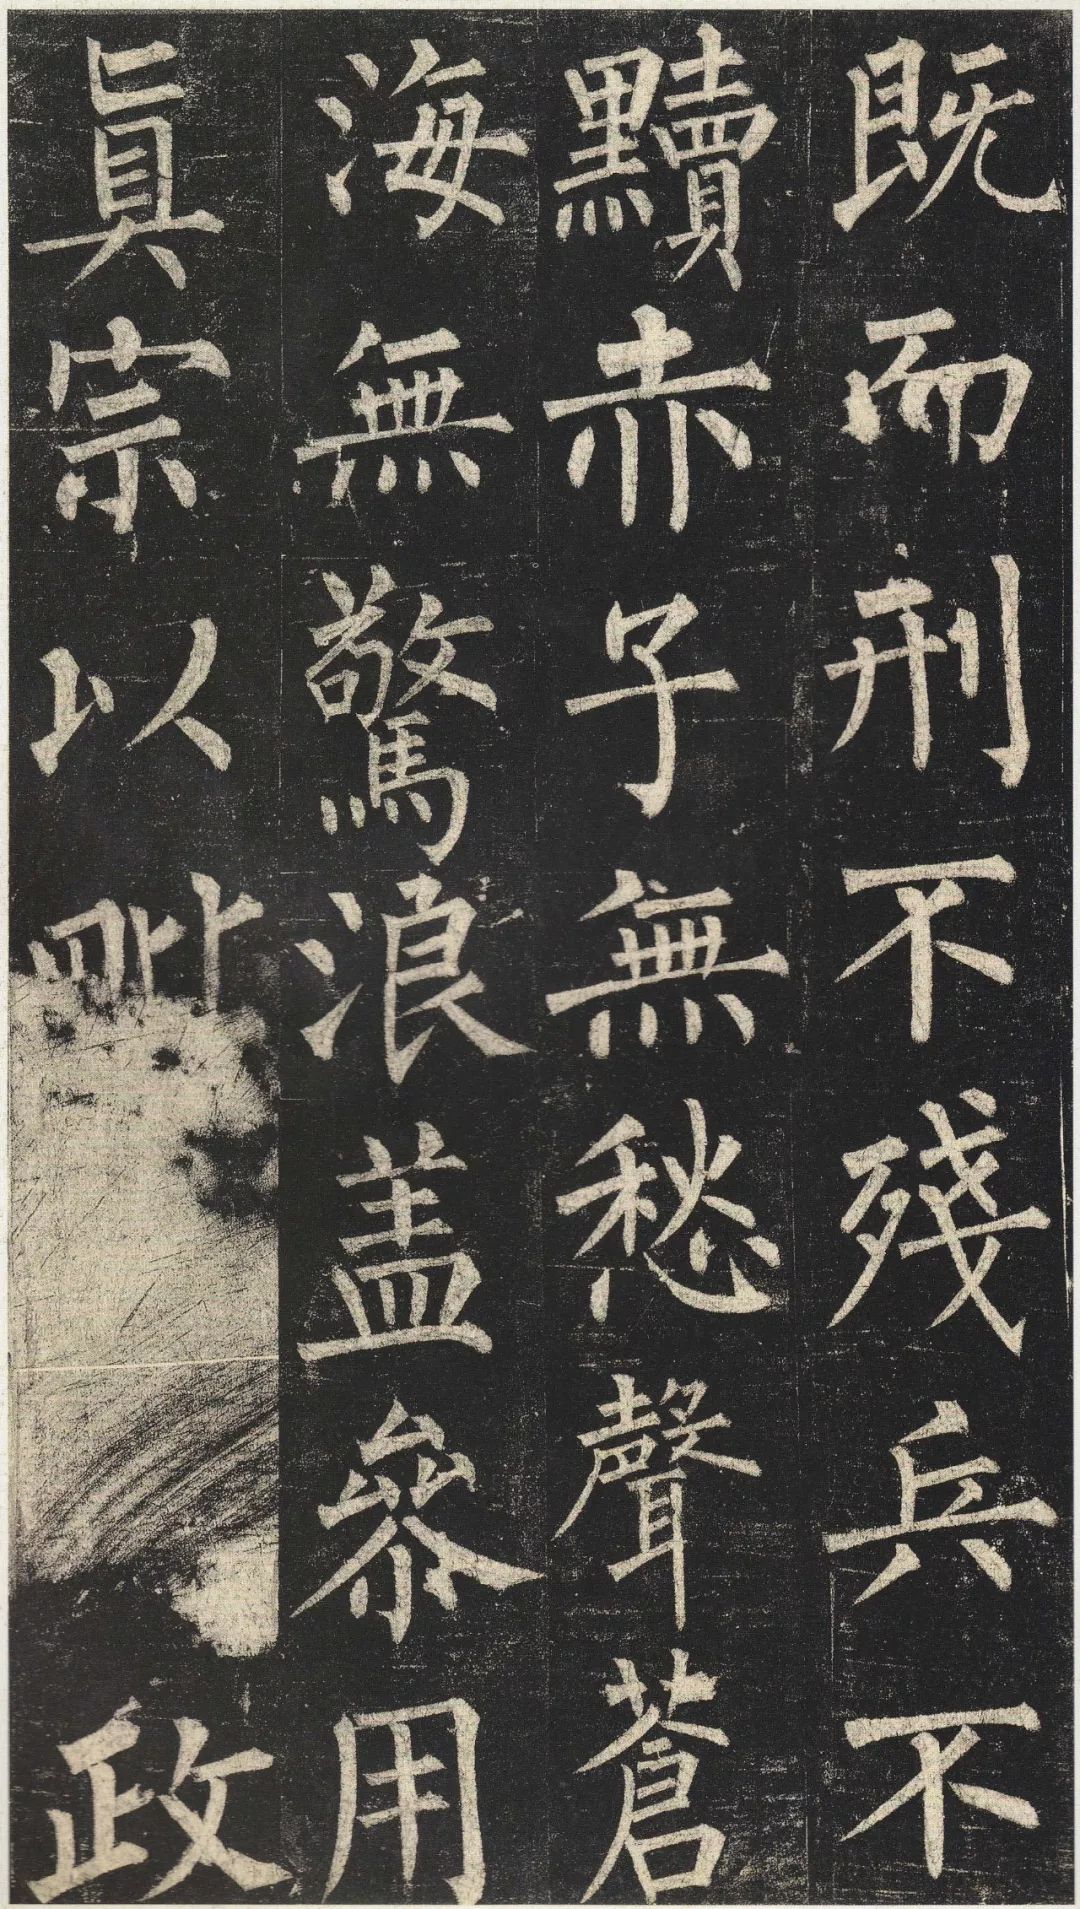 既而刑不殘兵不
黷赤子無愁聲蒼
海無驚浪盖叅用
眞宗以毗政